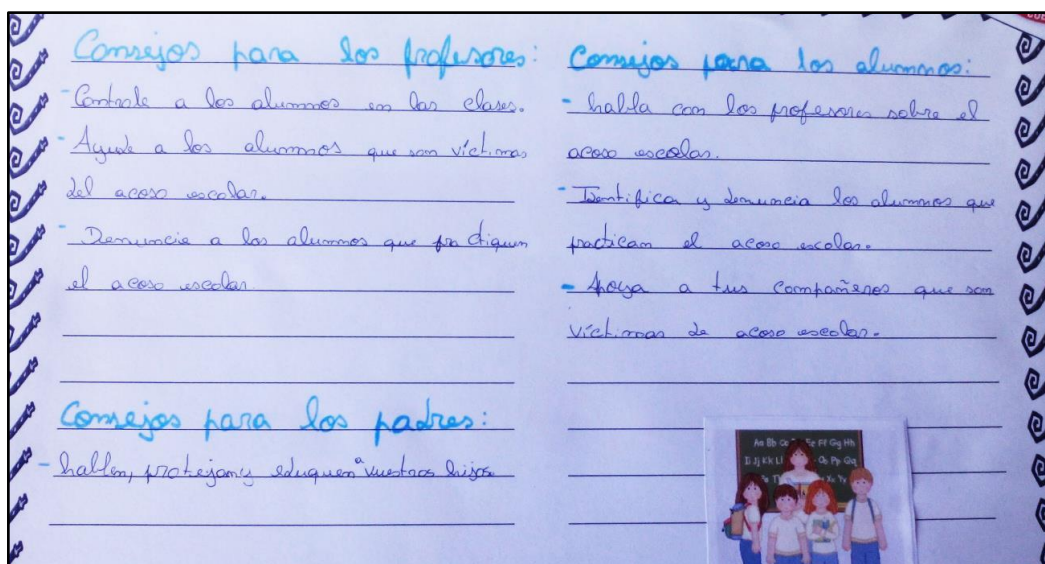 Consejos para los profesores:
- Controle a los alumnos en las clases.
- Ayude a los alumnos que son víctimas
del acoso escolar.
- Denuncie a los alumnos que practiquen
el acoso escolar
Consejos para los padres:
- hablen, protejan y eduquen a vuestros hijos.
Consejos para los alumnos:
- habla con los profesores sobre el
acoso escolar.
- Identifica y denuncia los alumnos que
practican el acoso escolar.
- Apoya a tus compañeros que son
víctimas de acoso escolar.
Aa Bb Ff Gg Hh
Ii Jj Kk Ll Oo Pp Qq